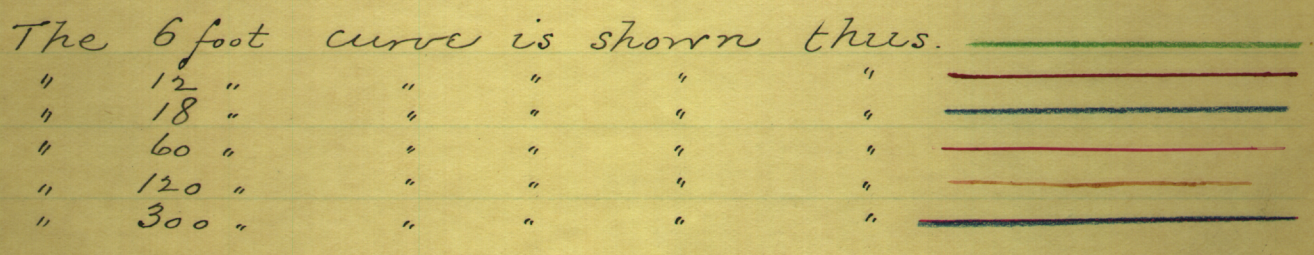 The 6 foot curve is shown thus.
" 12 " " " " "
" 18 " " " " "
" 60 " " " " "
" 120 " " " " "
" 300 " " " " "